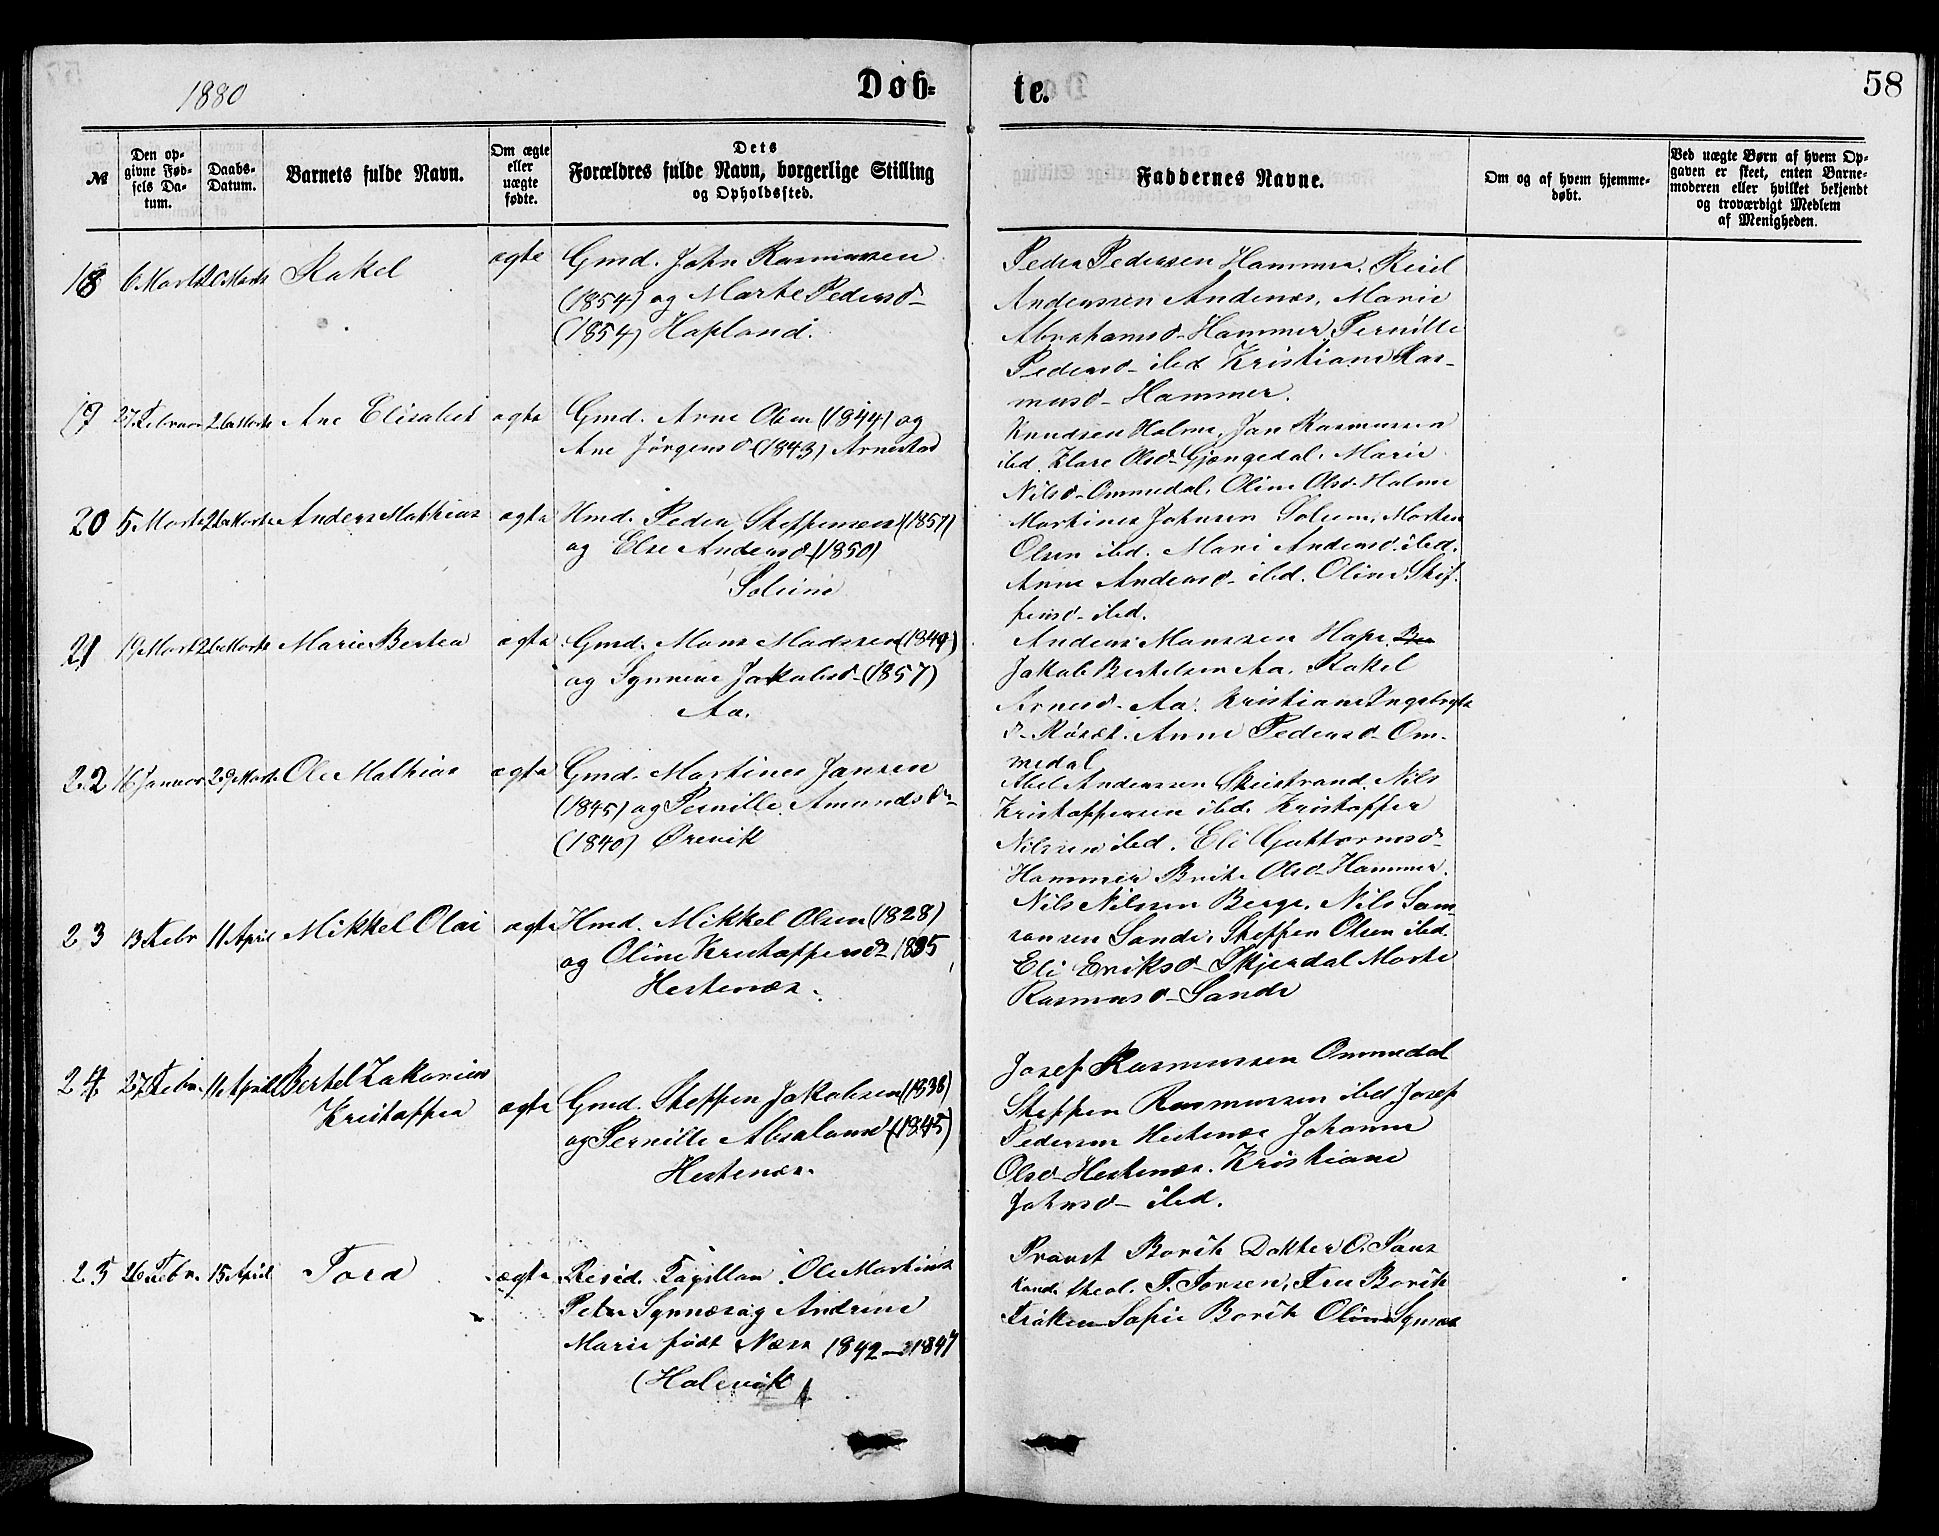 1880
Døb-
te.
58
№
Den op-
givne Fød-
sels Da-
tum.
Daabs-
Datum.
Barnets fulde Navn.
Om ægte
eller
uægte
fødte.
Dets
Forældres fulde Navn, borgerlige Stilling
og Opholdssted.
Faddernes Navne.
Om og af hvem hjemme-
døbt.
Ved uægte Børn af hvem Op-
gaven er skeet, enten Barne-
moderen eller hvilket bekjendt
og troværdigt Medlem
af Menigheden.
18 6 Marts 20 Marts Rakel ægte
Gmd. John Rasmussen
(1854) og Marte Pedersd-
(1854) Hapland.
Peder Pedersen Hammer.
Anderssen Andenæs, Marie
Abrahamsd- Hammer, Pernille
Pedersd- ibd Kristiane Ras-
musd- Hammer.
19 27 Februar 26 Marts Ane Elisabet ægte
Gmd. Arne Olsen (1844) og
Ane Jørgensd- (1843) Arnestad
Knudsen Holme, Jan Rasmussen
ibd. Klare Olsd- Gjengedal. Marie
Nilsd- Ommedal, Oline Olsd- Holme
20 5 Marts 26 Marts Anders Mathias ægte
Hmd. Peder Steffensen (1857)
og Else Andersd- (1850)
Soleim
Martines Johnsen Solem, Morten
Olsen ibd. Mari Andersd. ibd.
Anne Andersd- ibd. Oline Stef-
fensd- ibd.
21 19 Marts 26 Marts Marie Bertea ægte
Gmd. Mons Madssen (1849)
og Synneve Jakobsd- (1857)
Aa.
Anders Monssen Hope.
Jakob Bertelsen Aa. Rakel
Arnesd- Aa. Kristiane Ingebrigts
d- Røset. Anne Pedersd- Om-
medal
22 16 Januar 29 Marts Ole Mathias ægte
Gmd. Martines Jansen
(1845) og Pernille Amundsdr-
(1840) Ørevik
Abel Anderssen Skeistrand. Nils
Kristoffersen ibd. Kristoffer
Nilssen ibd. Eli Guttormsd-
Hammer Brite Olsd- Hammer.
23 13 Febr 11 April Mikkel Olai ægte
Hmd. Mikkel Olsen (1828)
og Oline Kristoffersdr 1835
Hestenæs.
Nils Nilssen Berge. Nils Sam-
sonsen Sande, Steffen Olsen ibd.
Eli Eriksd- Skjerdal Marte
Rasmusd- Sande
24 27 Febr. 11 April Bertel Zakarias
Kristoffer ægte
Gmd. Steffen Jakobsen (1838)
og Pernille Absalonsd (1845)
Hestenæs.
Josef Rasmussen Ommedal
Steffen Rasmussen ibd Josef
Pedersen Hestenæs Johanne
Olsd- Hestenæs. Kristiane
Johnsd- ibd.
25 26 Febr. 15 April Tord ægte
Resid. Kapellan Ole Martinus
Peter Synnæs og Andrine
Marie født Næss 1842 - 1847
(Holevik
Provst Dokter O.
Kand. theol. Fru
Frøken Sofie Oline Synnæs